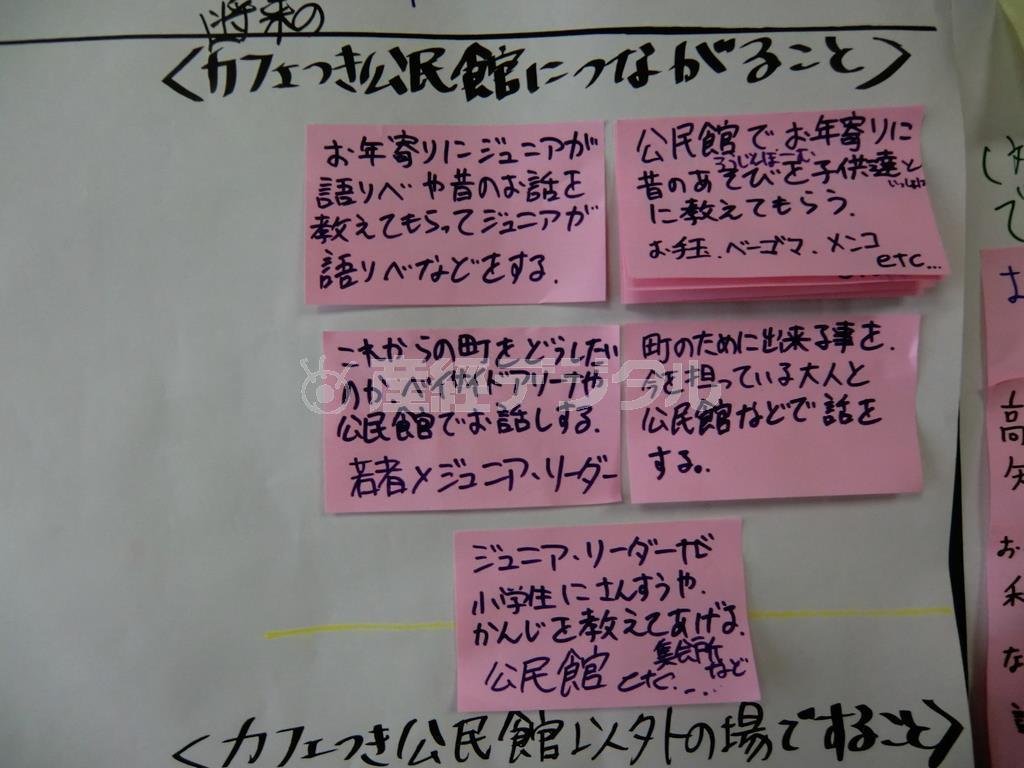 将来の
＜カフェつき公民館につながること＞
お年寄りにジュニアが
語りべや昔のお話を
教えてもらってジュニアが
語りべなどをする.
公民館でお年寄りに
昔のあそびを子供達と
いっしょに
に教えてもらう.
お手玉.ベーゴマ.メンコ
etc...
これからの町をどうしたい
のか.ベイサイドアリーナや
公民館でお話しする.
若者×ジュニア・リーダー
町のために出来る事を.
今を担っている大人と
公民館などで話を
する.
ジュニア・リーダーが
小学生にさんすうや.
かんじを教えてあげる.
公民館 集会所
etc.... など
＜カフェつき公民館以外の場ですること＞
産経デジタル
高
知
お
利
な